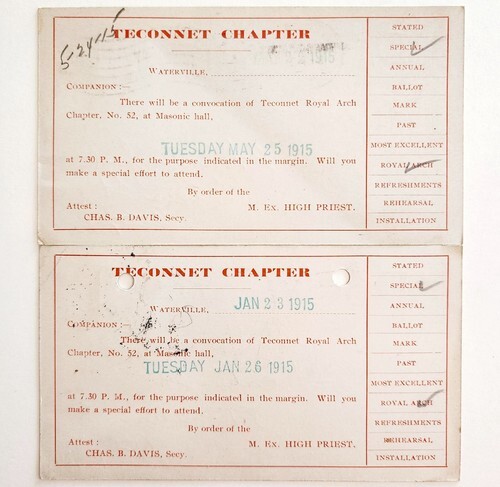 5-24-15
TECONNET CHAPTER
WATERVILLE,
COMPANION :—
There will be a convocation of Teconnet Royal Arch
Chapter, No. 52, at Masonic hall,
TUESDAY MAY 25 1915
at 7.30 P. M., for the purpose indicated in the margin. Will you
make a special effort to attend.
By order of the
Attest :
M. Ex. HIGH PRIEST.
CHAS. B. DAVIS, Secy.
STATED
SPECIAL
ANNUAL
BALLOT
MARK
PAST
MOST EXCELLENT
ROYAL ARCH
REFRESHMENTS
REHEARSAL
INSTALLATION
TECONNET CHAPTER
WATERVILLE, JAN 23 1915
COMPANION :—
There will be a convocation of Teconnet Royal Arch
Chapter, No. 52, at Masonic hall,
TUESDAY JAN 26 1915
at 7.30 P. M., for the purpose indicated in the margin. Will you
make a special effort to attend.
By order of the
Attest :
M. Ex. HIGH PRIEST.
CHAS. B. DAVIS, Secy.
STATED
SPECIAL
ANNUAL
BALLOT
MARK
PAST
MOST EXCELLENT
ROYAL ARCH
REFRESHMENTS
REHEARSAL
INSTALLATION